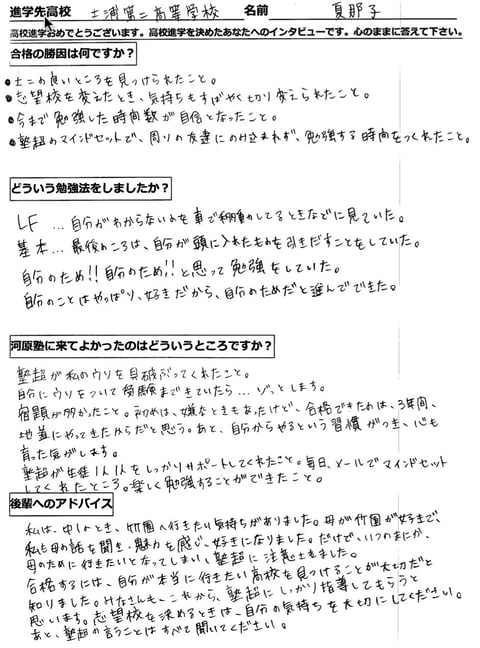 進学先高校 土浦第二高等学校 名前 夏那子
高校進学おめでとうございます。高校進学を決めたあなたへのインタビューです。心のままに答えて下さい。
合格の勝因は何ですか?
・土二の良いところを見つけられたこと。
・志望校を変えたとき、気持ちもすばやく切り変えられたこと。
・今まで勉強した時間数が自信となったこと。
・塾超のマインドセットで、周りの友達にのみ込まれず、勉強する時間をつくれたこと。
どういう勉強法をしましたか?
LF … 自分がわからないのを車で移動してるときなどに見ていた。
基本 … 最後のころは、自分が頭に入れたものを引きだすことをしていた。
自分のため!!自分のため!!と思って勉強をしていた。
自分のことはやっぱり、好きだから、自分のためだと進んでできた。
河原塾に来てよかったのはどういうところですか?
塾超が私のウソを見破ってくれたこと。
自分にウソをついて受験まできていたら…ゾッとします。
宿題が多かったこと。初めは、嫌なときもあったけど、合格できたのは、3年間、
地道にやってきたからだと思う。あと、自分からやるという習慣がつき、心も
育った気がします。
塾超が生徒1人1人をしっかりサポートしてくれたこと。毎日、メールでマインドセット
してくれたところ。楽しく勉強することができたこと。
後輩へのアドバイス
私は、中1のとき、竹園へ行きたい気持ちがありました。母が竹園が好きで、
私も母の話を聞き、魅力を感じ、好きになりました。だけど、いつのまにか、
母のために行きたいとなってしまい、塾超に注意されました。
合格するには、自分が本当に行きたい高校を見つけることが大切だと
知りました。みなさんも、これから、塾超にしっかり指導してもらうと
思います。志望校を決めるときは、自分の気持ちを大切にしてください。
あと、塾超の言うことはすべて聞いてください。